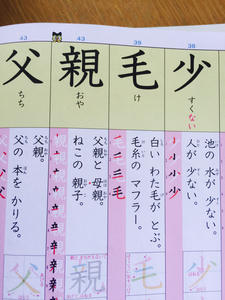 38
少
すくない
池の水が少ない。
人が少ない。
39
毛
け
白いわた毛がとぶ。
毛糸のマフラー。
43
親
おや
父親と母親。
ねこの親子。
43
父
ちち
父親。
父の本をかりる。
少
毛
親
父